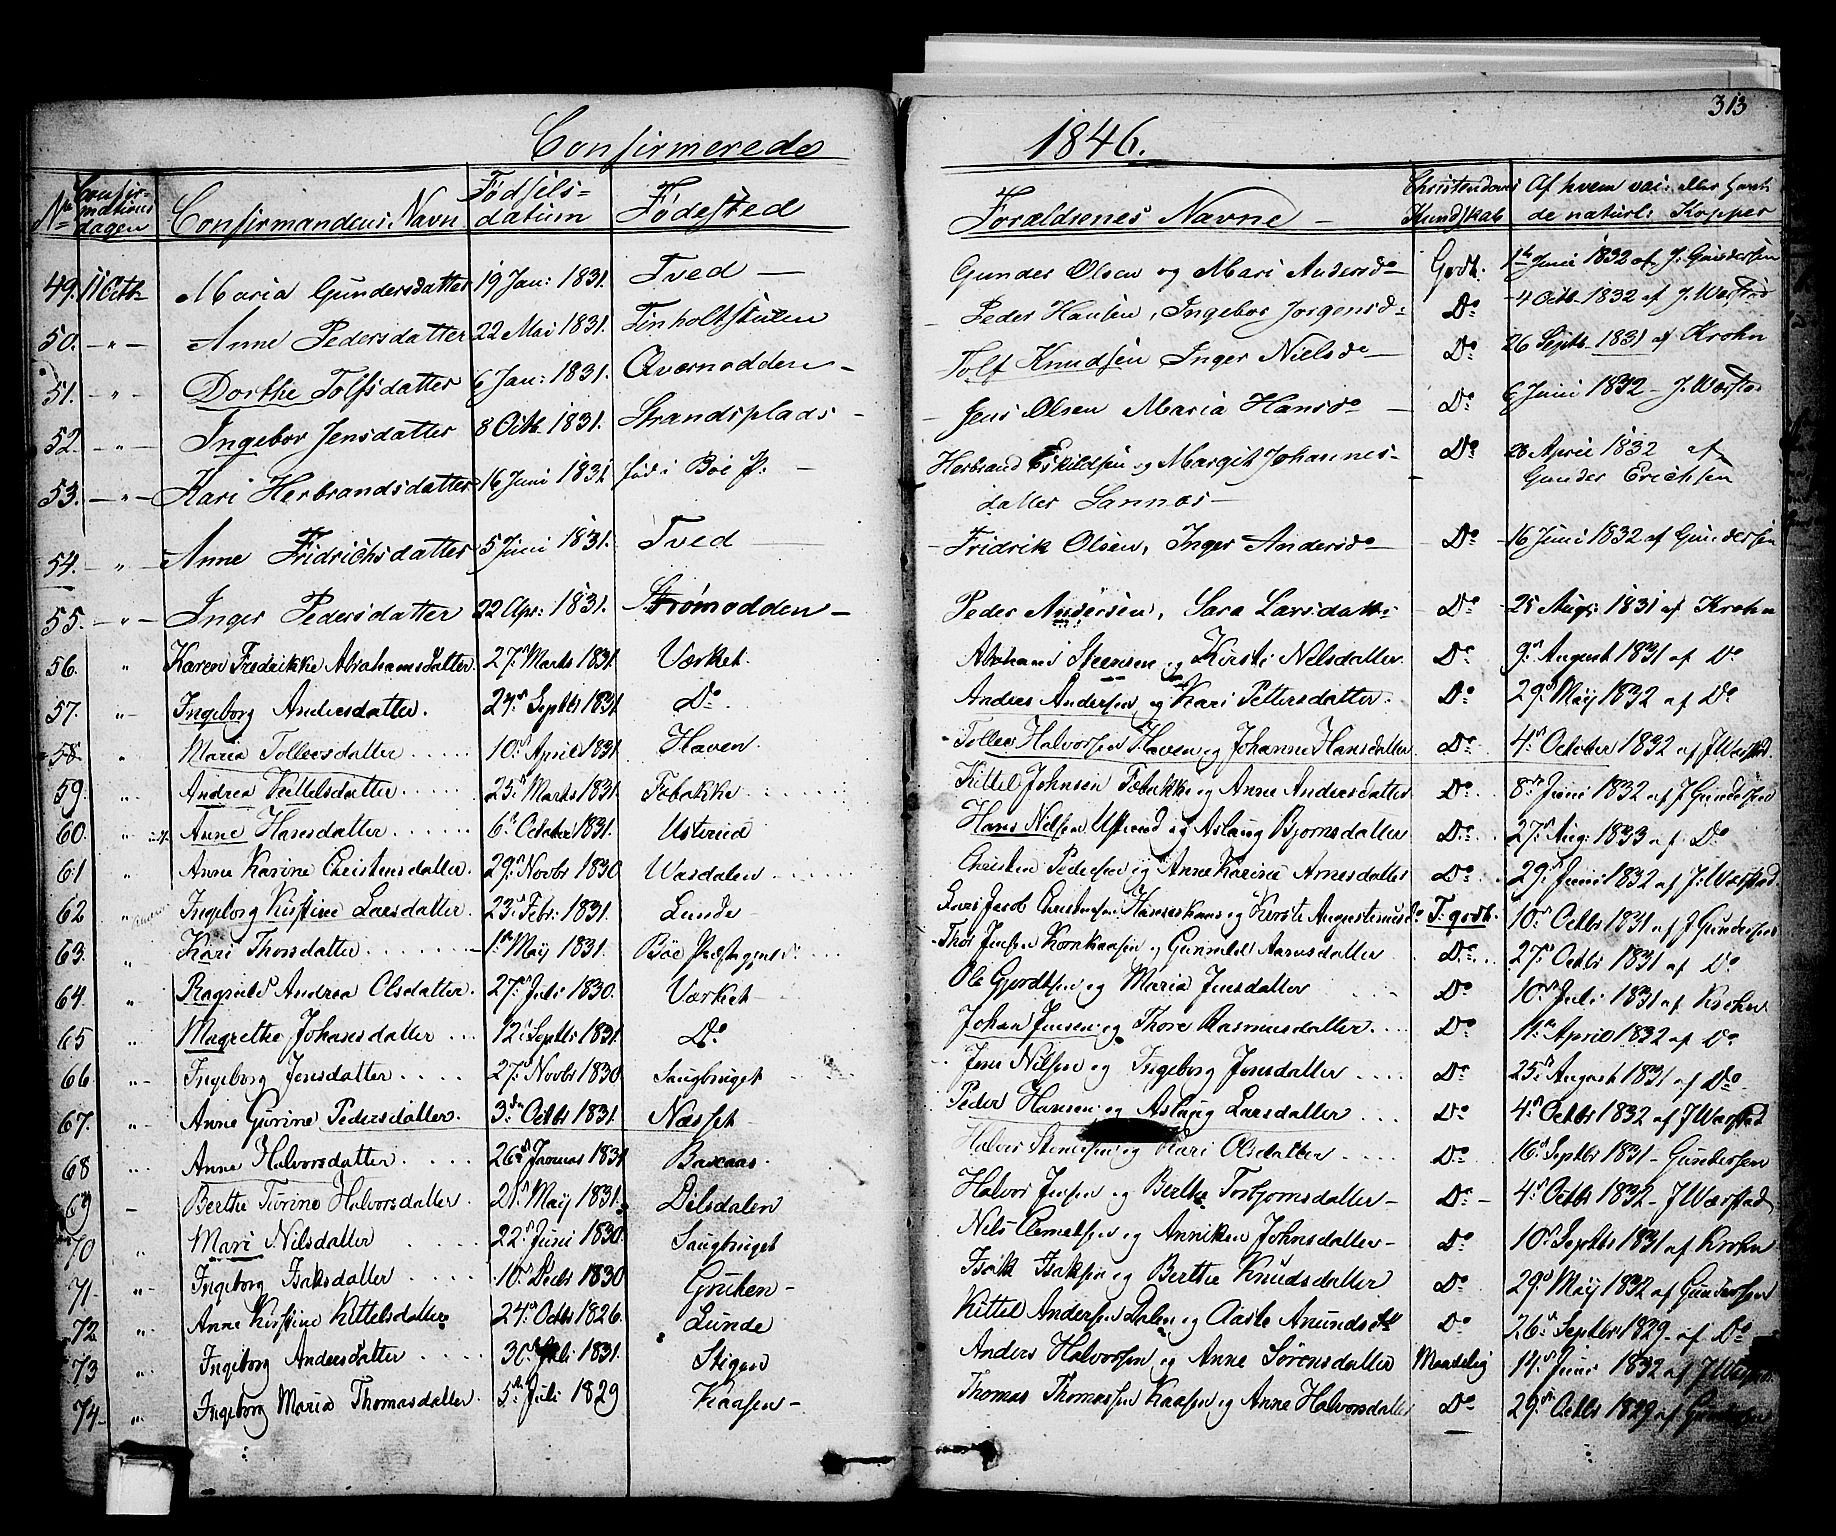 313
Confirmerede 1846.
No Confirmationsdagen Confirmandens Navn Fødselsdatum Fødested Forældrenes Navne Christendoms Kundskab Af hvem vac: eller havt de naturl: Kopper
49. 11 Octb Maria Gundersdatter 19 Jan: 1831. Tved — Gunder Olsen og Mari Andersdr Godt. 1te Juni 1832 af J. Gundersen
50. — " — Anne Pedersdatter 22 Mai 1831. Tinholtstulen — Peder Hansen, Ingebor Jørgensdr Do 4 Octb. 1832 af J. Wæstad
51. — " — Dorthe Tolfsdatter 6 Jan: 1831. Qværnodden — Tolf Knudsen Inger Nielsdr — Do 26 Septb. 1831 af Krohn
52. — " — Ingebor Jensdatter 8 Octb. 1831. Strandsplads — Jens Olsen Maria Hansdr — Do 6 Juni 1832 — J. Wæstad
53. — " — Kari Herbrandsdatter 16 Juni 1831 född i Böe P. — Herbrand Eskildsen og Margit Johannes- Do 20 April 1832 af
datter Sannæs — Gunder Erichsen
54. — " — Anne Fridrichsdatter 5 Juni 1831. Tved — Fridrik Olsen, Inger Andersdr — Do 16 Juni 1832 af Gundersen
55. — " — Inger Pedersdatter 22 Apr: 1831. Strømodden — Peder Andersen, Sara Larsdatter Do 25 Aug: 1831 af Krohn
56. " Karen Fredrikke Abrahamsdatter 27. Marts 1831. Værket. Abraham Steensen og Kirsti Nelsdatter Do 9. August 1831 af Do
57. " Ingeborg Andersdatter. 27. Septbr 1831 Do Anders Andersen og Kari Pettersdatter. Do 29. May 1832 af Do
58. " Maria Tollersdatter 10. April 1831. Haven. Tollev Halvorsen Haven og Johanne Hansdatter Do 4. October 1832 af J Wæstad.
59. " Andrea Kittelsdatter 25. Marts 1831. Febakke Kittel Johnsen Febakke og Anne Andersdatter Do 8. Juni 1832 af J Gundersen
60. " Anne Hansdatter 6. October 1831. Usterud Hans Nilsen Usterud og Aslaug Bjornsdatter Do 27. Aug: 1833 af Do
61 " Anne Karine Christensdatter. 29. Novbr 1830 Vasdalen Christen Pedersen og Anne Karine Arnesdatter Do 29. Juni 1832 af J: Wæstad.
62 " Ingeborg Kirstine Larsdatter. 23. Febr: 1831. Lunde Lars Jacob Christensen og Kirstie Augustinusdr T. godt. 10. Octbr 1831 af J Gundersen
63. " Kari Thorsdatter 1. May 1831. Böe Thor Jensen Kornkaasen og Gunnild Aarnesdatter Do 27. Octbr 1831 af Do
64. " Ragnild Andrea Olsdatter. 27. Juli 1830. Værket — Ole Gjordtsen og Maria Jensdatter Do 10. Juli 1831 af Krohn
65 " Magrethe Johansdatter 12. Septbr 1831. Do Johan Jensen og Thore Rasmusdatter Do 11. April 1832 af Do
66 " Ingeborg Jensdatter 27. Novbr 1830 Saugbruget Jens Nilsen og Ingeborg Jensdatter Do 25. August 1831 af Do
67. " Anne Gurine Pedersdatter. 3. Octbr 1831. Næsset — Peder Hansen og Aslaug Larsdatter Do 4. Octbr 1832 af J Wæstad
68 " Anne Halvorsdatter 26. Januar 1831 Baxaas. Halvor Stenersen og Kari Olsdatter Do 16. Septbr 1831 — Gundersen
69 — Berthe Torine Halvorsdatter. 21. May 1831. Dilsdalen Halvor Jensen og Berthe Torbjornsdatter — Do — 4. Octbr 1832 — J Wæstad
70 " Mari Nilsdatter 22. Juni 1830. Saugbruget Nils Clemetsen og Anniken Johnsdatter — Do 10. Septbr 1831 af Krohn
71 — " Ingeborg Isaksdatter 10. Decbr 1830 Gruben — Isak Isaksen og Berthe Knudsdatter Do 29. May 1832. af Gundersen
72 " Anne Kirstine Kittelsdatter 24. Octbr 1826. Lunde Kittel Andersen Dalen og Aaste Anundsdtr Do 26. Septbr 1829. af Do
73 " Ingeborg Andersdatter 30. Juli 1831. Stigen Anders Halvorsen og Anne Sörensdatter Maadelig 14. Juni 1832 af J Wæstad
74 " Ingeborg Maria Thomasdatter 5. Juli 1829 Kaasen — Thomas Thomassen Kaasen og Anne Halvorsdatter Do 29. Octbr 1829 af Gundersen